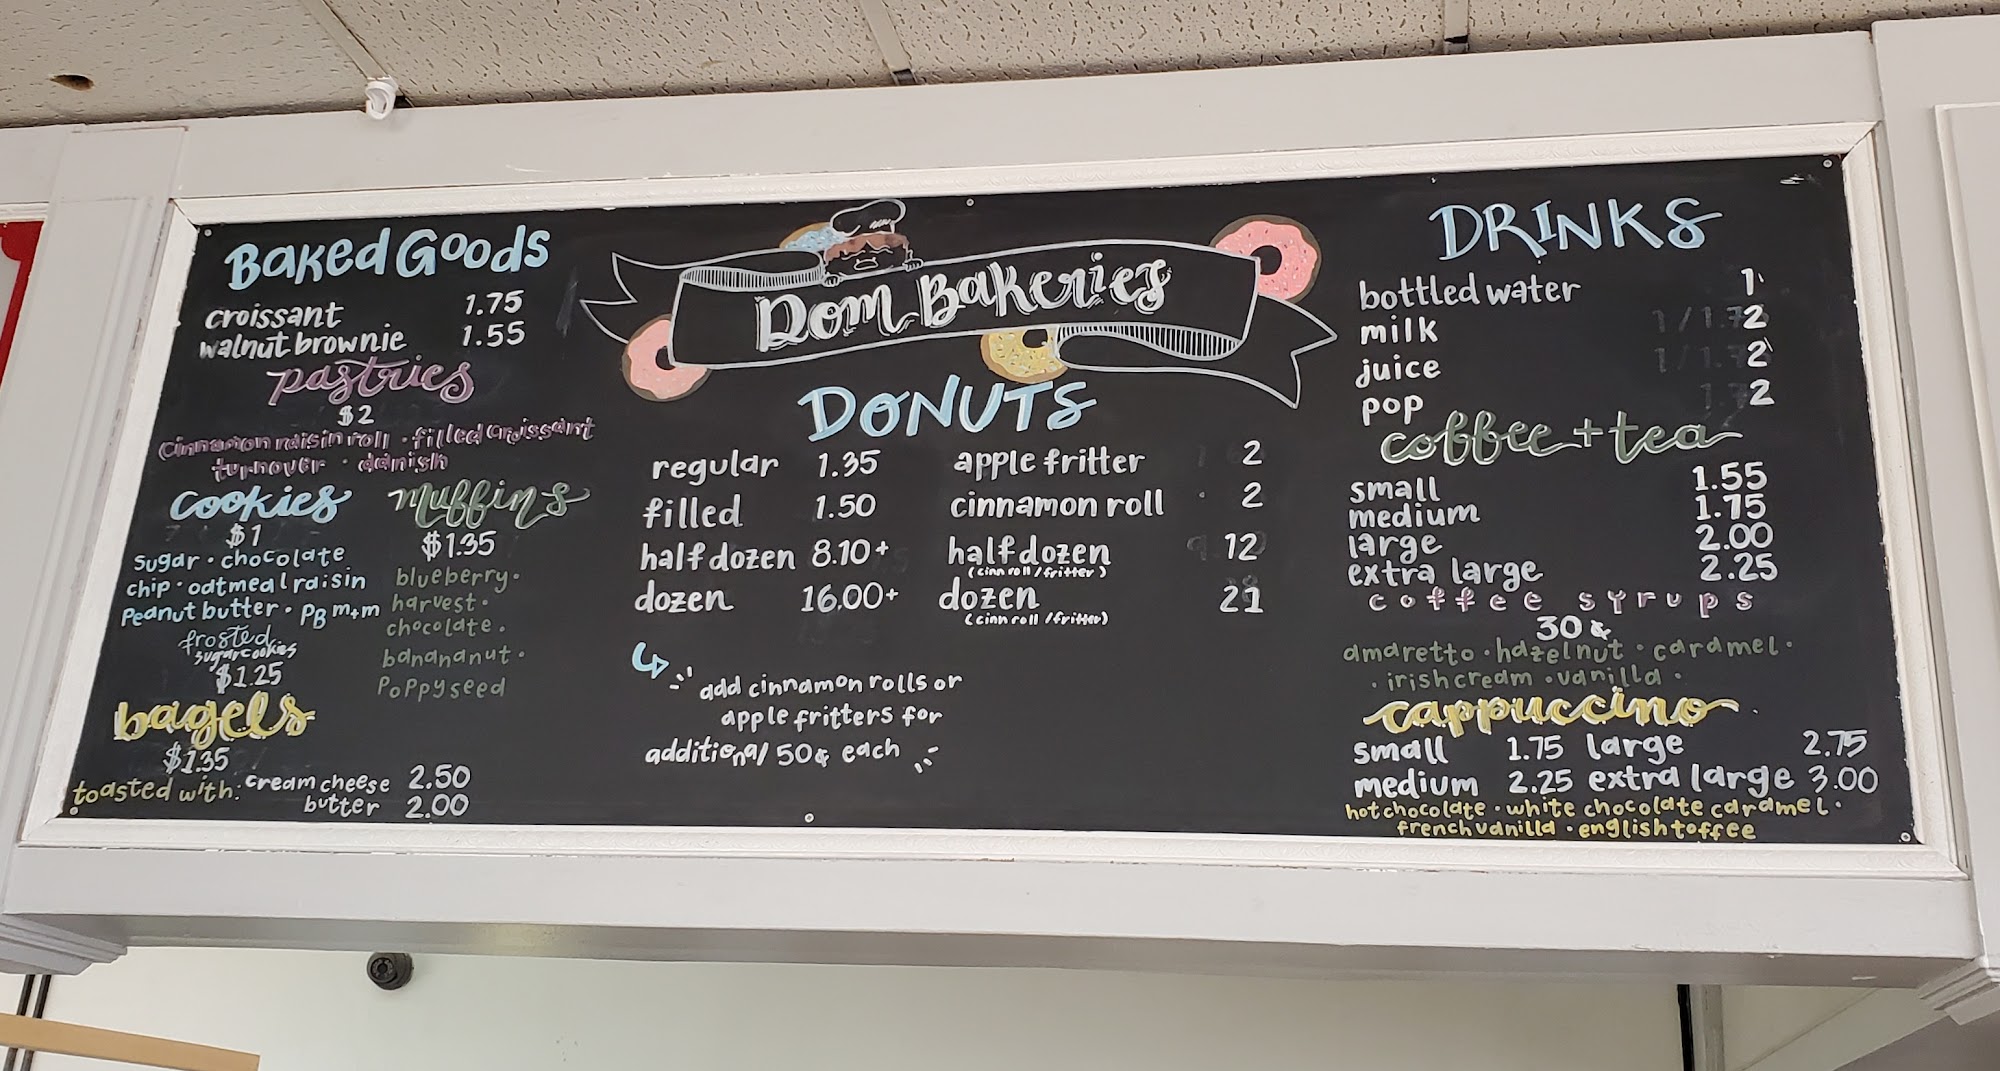 Baked Goods
croissant 1.75
walnut brownie 1.55
pastries
$2
cinnamon raisin roll · filled croissant
turnover · danish
cookies
$1
sugar · chocolate
chip · oatmeal raisin
Peanut butter · PB m+m
frosted
sugar cookies
$1.25
muffins
$1.35
blueberry ·
harvest ·
chocolate ·
banana nut ·
poppyseed
bagels
$1.35
toasted with: cream cheese 2.50
butter 2.00
Dom Bakeries
DONUTS
regular 1.35 apple fritter 2
filled 1.50 cinnamon roll 2
half dozen 8.10+ half dozen 12
(cinn roll / fritter)
dozen 16.00+ dozen 21
(cinn roll / fritter)
add cinnamon rolls or
apple fritters for
additional 50¢ each
DRINKS
bottled water 1
milk 2
juice 2
pop 2
coffee + tea
small 1.55
medium 1.75
large 2.00
extra large 2.25
coffee syrups
30¢
amaretto · hazelnut · caramel ·
· irish cream · vanilla ·
cappuccino
small 1.75 large 2.75
medium 2.25 extra large 3.00
hot chocolate · white chocolate caramel ·
french vanilla · english toffee